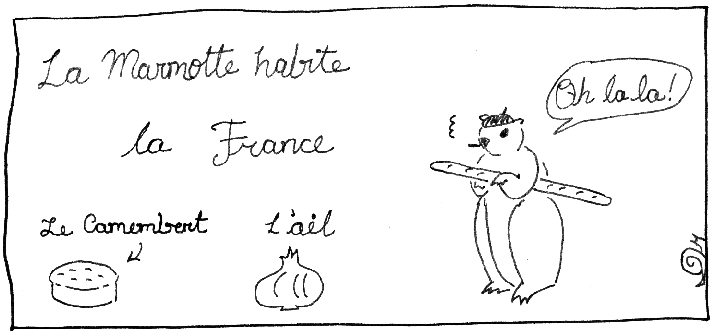 La Marmotte habite
la France
Oh la la!
Le Camembert
L'ail